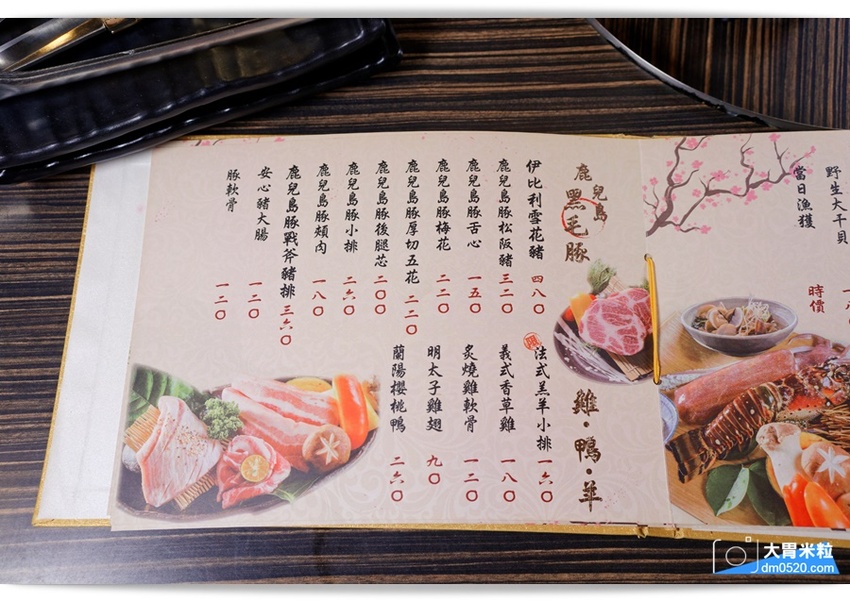 野生大干貝
當日漁獲 時價
鹿兒島黑毛豚
伊比利雪花豬 四八〇
鹿兒島豚松阪豬 三二〇
鹿兒島豚舌心 一五〇
鹿兒島豚梅花 二二〇
鹿兒島豚厚切五花 二二〇
鹿兒島豚後腿芯 二〇〇
鹿兒島豚小排 二六〇
鹿兒島豚頰肉 一八〇
鹿兒島豚戰斧豬排 三六〇
安心豬大腸 一二〇
豚軟骨 一二〇
雞・鴨・羊
限 法式羔羊小排 一六〇
義式香草雞 一八〇
炙燒雞軟骨 一二〇
明太子雞翅 九〇
蘭陽櫻桃鴨 二六〇
大胃米粒
dm0520.com